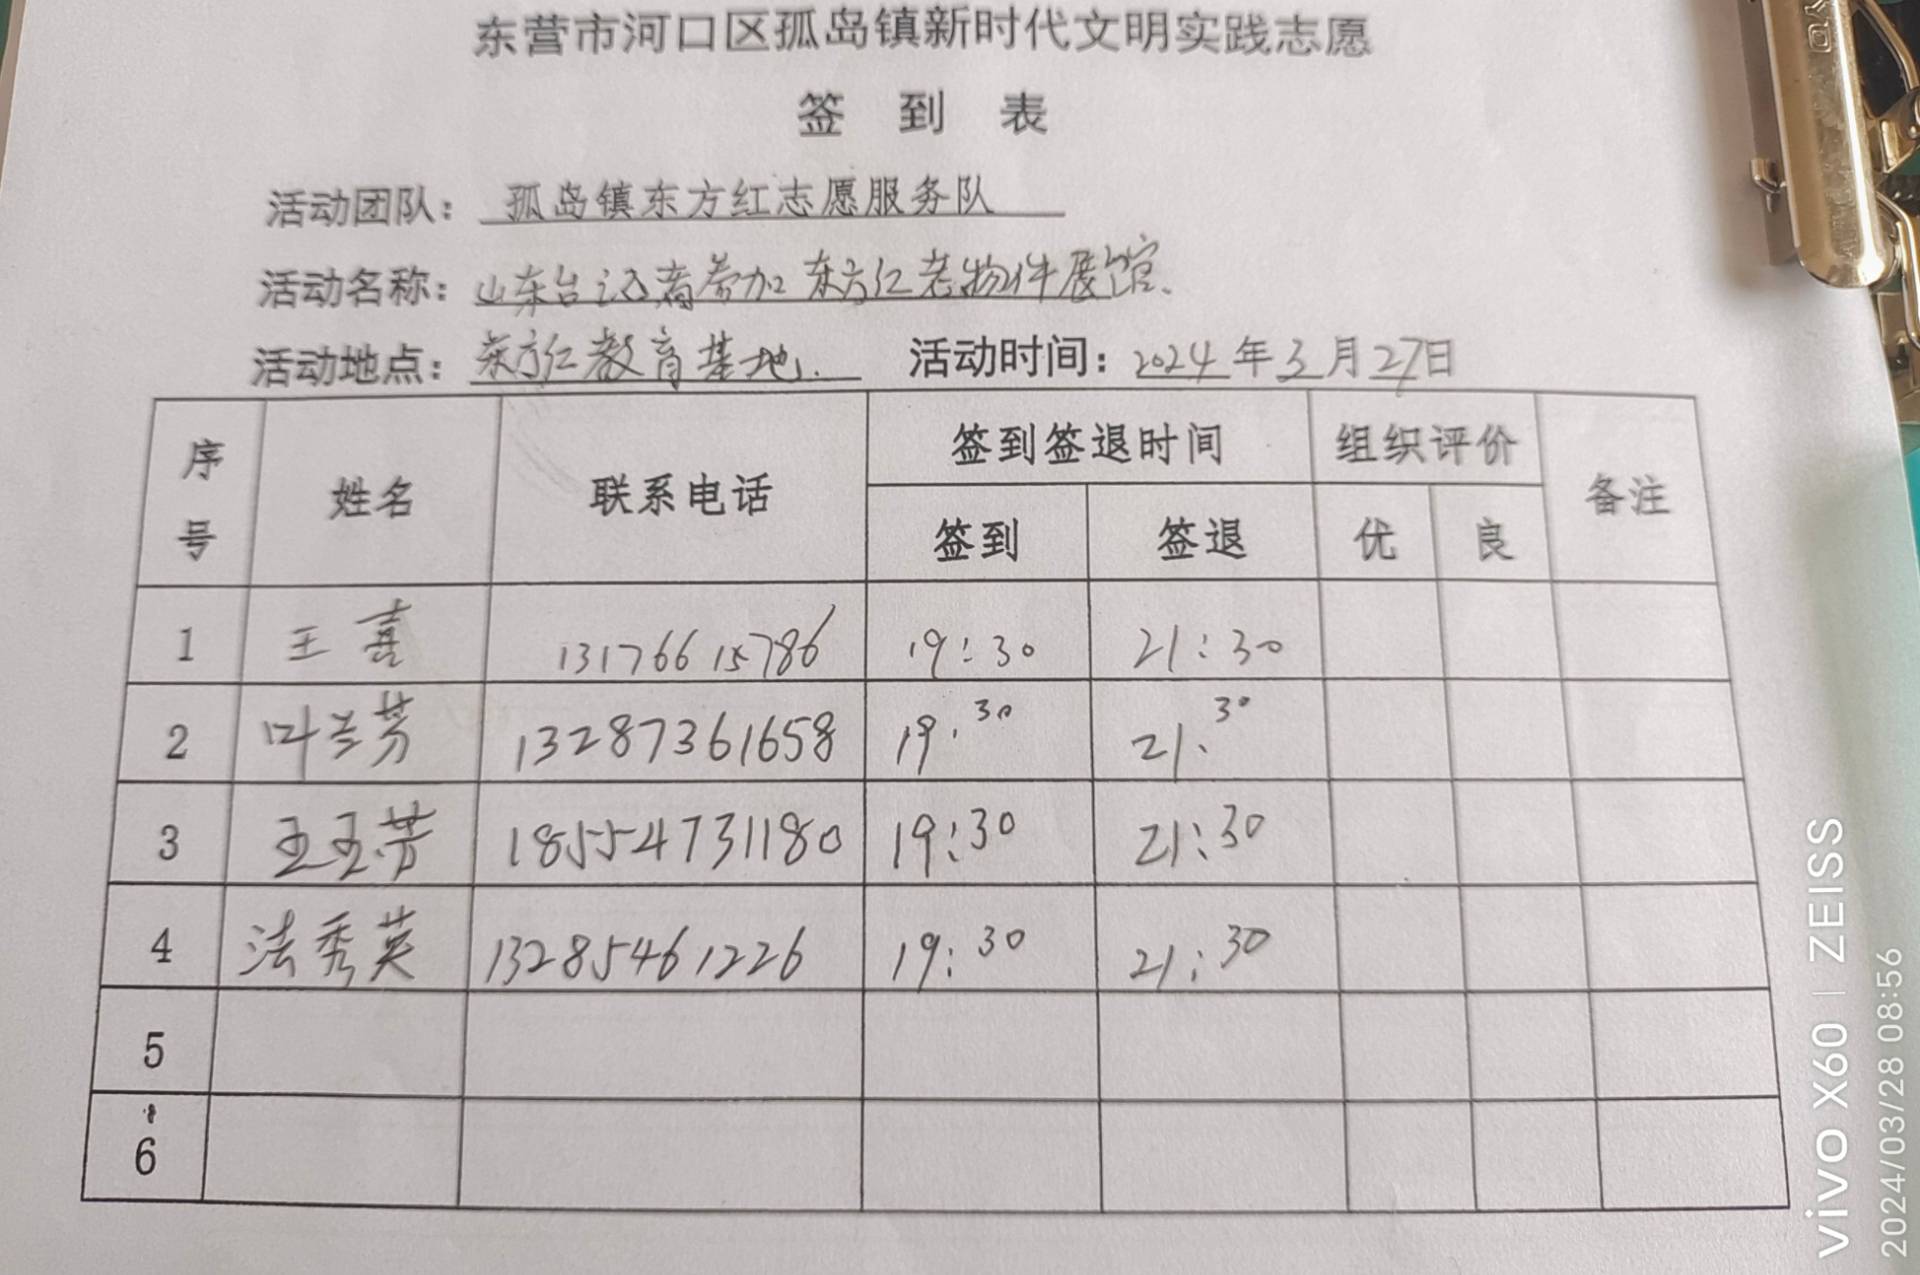 东营市河口区孤岛镇新时代文明实践志愿
签 到 表
活动团队： 孤岛镇东方红志愿服务队
活动名称：山东台记者参加东方红老物件展馆.
活动地点：东方红教育基地. 活动时间：2024年3月27日
序号 姓名 联系电话 签到签退时间 组织评价 备注
签到 签退 优 良
1 王喜 13176615786 19:30 21:30
2 叶兰芳 13287361658 19.30 21.30
3 王玉芳 18554731180 19:30 21:30
4 法秀英 13285461226 19:30 21:30
5
6
vivo X60 | ZEISS
2024/03/28 08:56